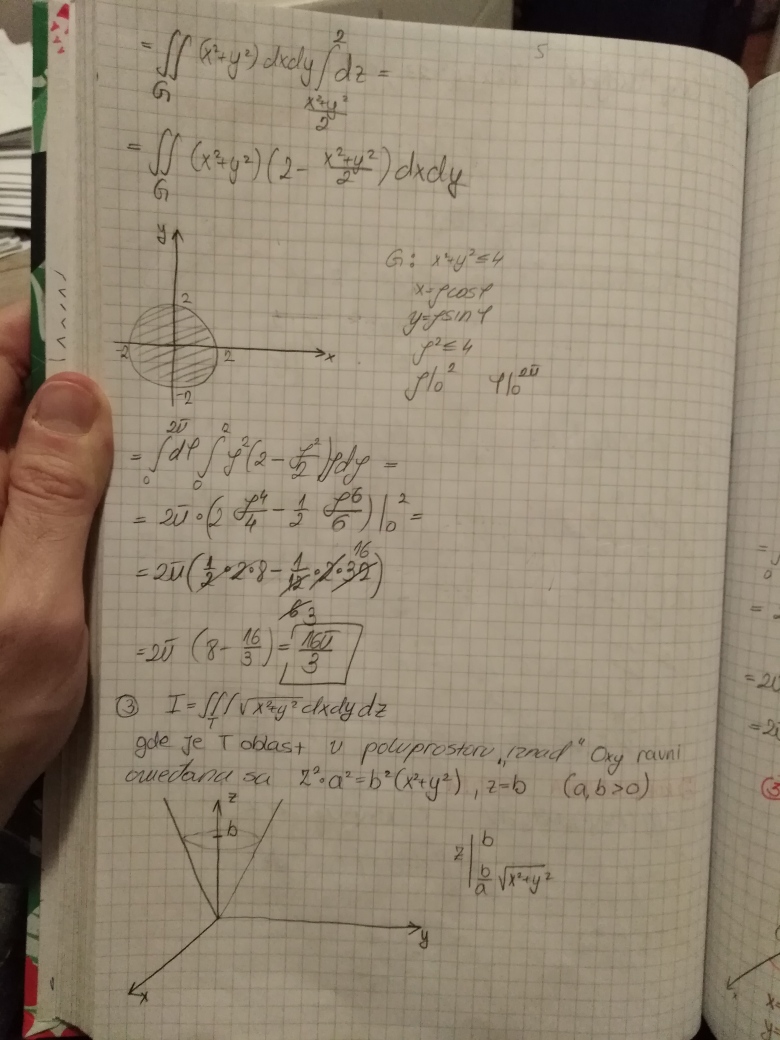 5
= ∬_G (x²+y²) dxdy ∫_{(x²+y²)/2}^{2} dz =
= ∬_G (x²+y²)(2 - (x²+y²)/2) dxdy
y
2
-2 2 x
-2
G: x²+y² ≤ 4
x=ρcosφ
y=ρsinφ
ρ² ≤ 4
ρ|₀² φ|₀^{2π}
= ∫₀^{2π} dφ ∫₀² ρ²(2 - ρ²/2)ρdρ =
= 2π·(2 ρ⁴/4 - 1/2 ρ⁶/6)|₀² =
= 2π(1/2·2·8 - 1/12·2·32)
16
6 3
= 2π (8 - 16/3) = 16π/3
③ I = ∭_T √(x²+y²) dxdydz
gde je T oblast u poluprostoru „iznad“ Oxy ravni
omeđana sa z²·a² = b²(x²+y²), z=b (a,b>0)
z
b
y
x
z | b
b/a √(x²+y²)